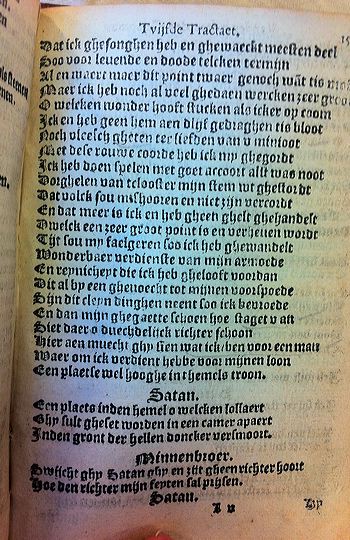 Tvijfde Tractaet.
Dat ick ghesonghen heb en ghewaeckt meesten deel
Soo voor leuende en doode telcken termijn
Al en waert maer dit point twaer genoch wāt tis
Maer ick heb noch al veel ghedaen wercken zeer
O welcken wonder hooft stucken als icker op coom
Ick en heb geen hem aen dlijf gedraghen tis bloot
Noch vleesch gheten ter liefden van v minioot
Met dese rouwe coorde heb ick my ghegordt
Ick heb doen spelen met goet accoort alst was noot
Dorghelen van tclooster mijn stem wt ghestordt
Dat volck sou mishooren en niet zijn vercordt
End dat meer is ick en heb gheen ghelt ghehandelt
Dwelck een zeer groot point is en verheuen wordt
Tijt sou my faelgeren soo ick heb ghewandelt
Wonderbaer verdienste van mijn armoede
En reynicheyt die ick heb ghelooft voordan
Dit al by een ghenoecht tot mijnen voorspoede
Sijn dit cleyn dinghen neent soo ick bevroede
En dan mijn ghegaette schoen hoe staget v an
Siet daer o duechdelijck richter schoon
Hier aen muecht ghy sien wat ick ben voor een man
Waer om ick verdient hebbe voor mijnen loon
Een plaetse wel hooghe int hemels troon.
Satan.
Een plaets inden hemel o welcken lossaert
Ghy sult gheset worden in een camer apaert
Inden gront der hellen doncker versmoort.
Minnenbroer.
Swijcht ghy Satan ghy en zijt gheen richter hoort
Hoe den richter mijn feyten sal prijsen.
Satan.